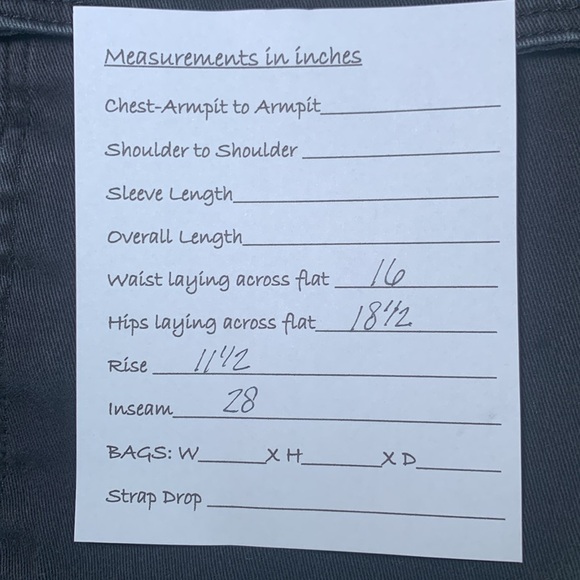 Measurements in inches
Chest-Armpit to Armpit
Shoulder to Shoulder
Sleeve Length
Overall Length
Waist laying across flat 16
Hips laying across flat 18 1/2
Rise 11 1/2
Inseam 28
BAGS: W X H X D
Strap Drop